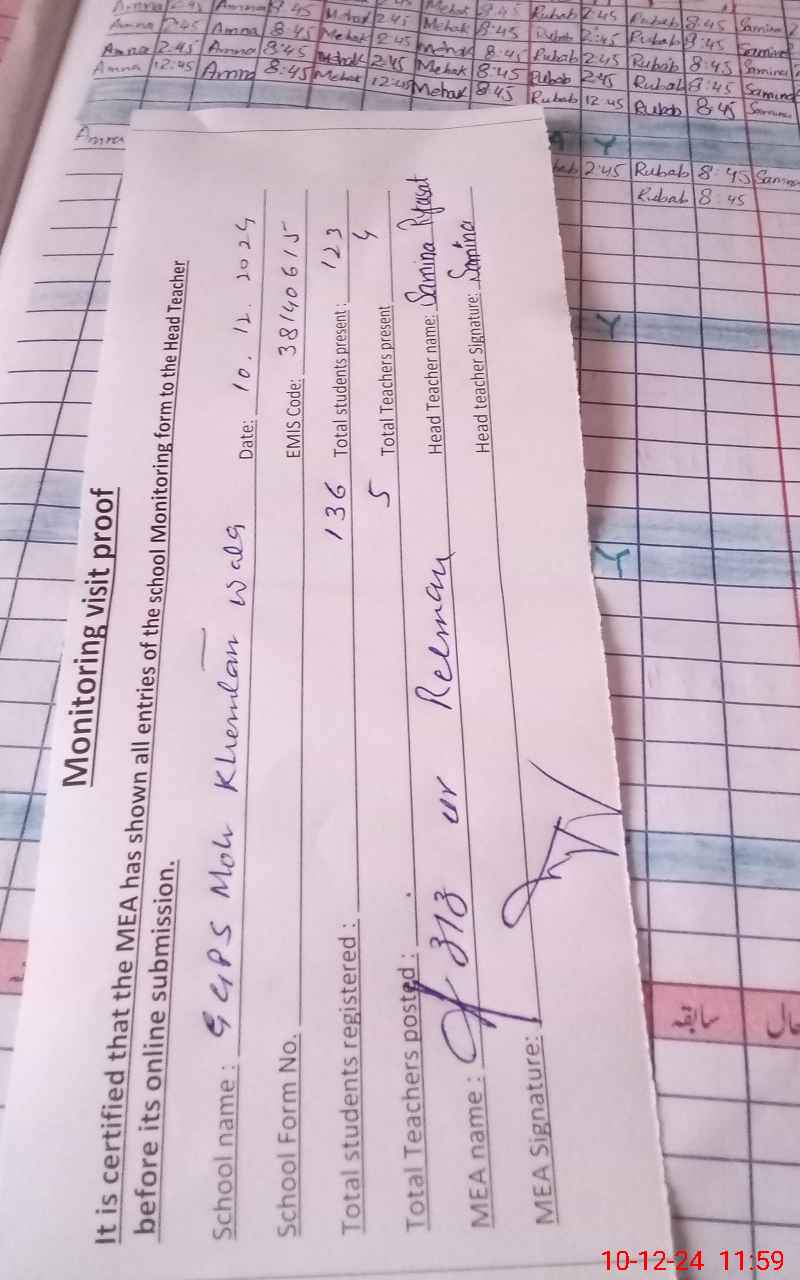 Amna 2:45 Amna 8:45 Mehak 2:45 Mehak 8:45 Rubab 2:45 Rubab 8:45 Samina
Amna 2:45 Amna 8:45 Mehak 2:45 Mehak 8:45 Rubab 2:45 Rubab 8:45 Samina
Amna 12:45 Amna 8:45 Mehak 12:45 Mehak 8:45 Rubab 2:45 Rubab 8:45 Samina
Rubab 12:45 Rubab 8:45 Samina
Amna
Y
2:45 Rubab 8:45 Samina
Rubab 8:45
Y
Y
Monitoring visit proof
It is certified that the MEA has shown all entries of the school Monitoring form to the Head Teacher
before its online submission.
School name : GGPS Moh Khemlan wala Date: 10.12.2024
School Form No. EMIS Code: 38140615
Total students registered : 136 Total students present : 123
Total Teachers posted : 5 Total Teachers present 4
MEA name : ur Rehman Head Teacher name: Samina Ryasat
MEA Signature: Head teacher Signature: Samina
سابقہ
حال
10-12-24 11:59